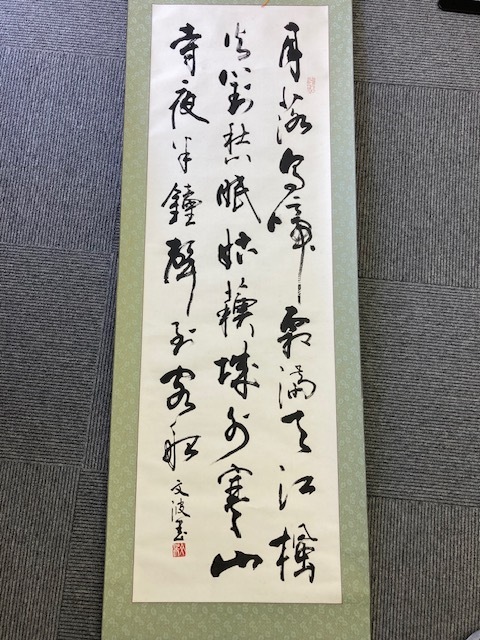 月落烏啼霜満天江楓
漁火對愁眠姑蘇城外寒山
寺夜半鐘聲到客船
文波書